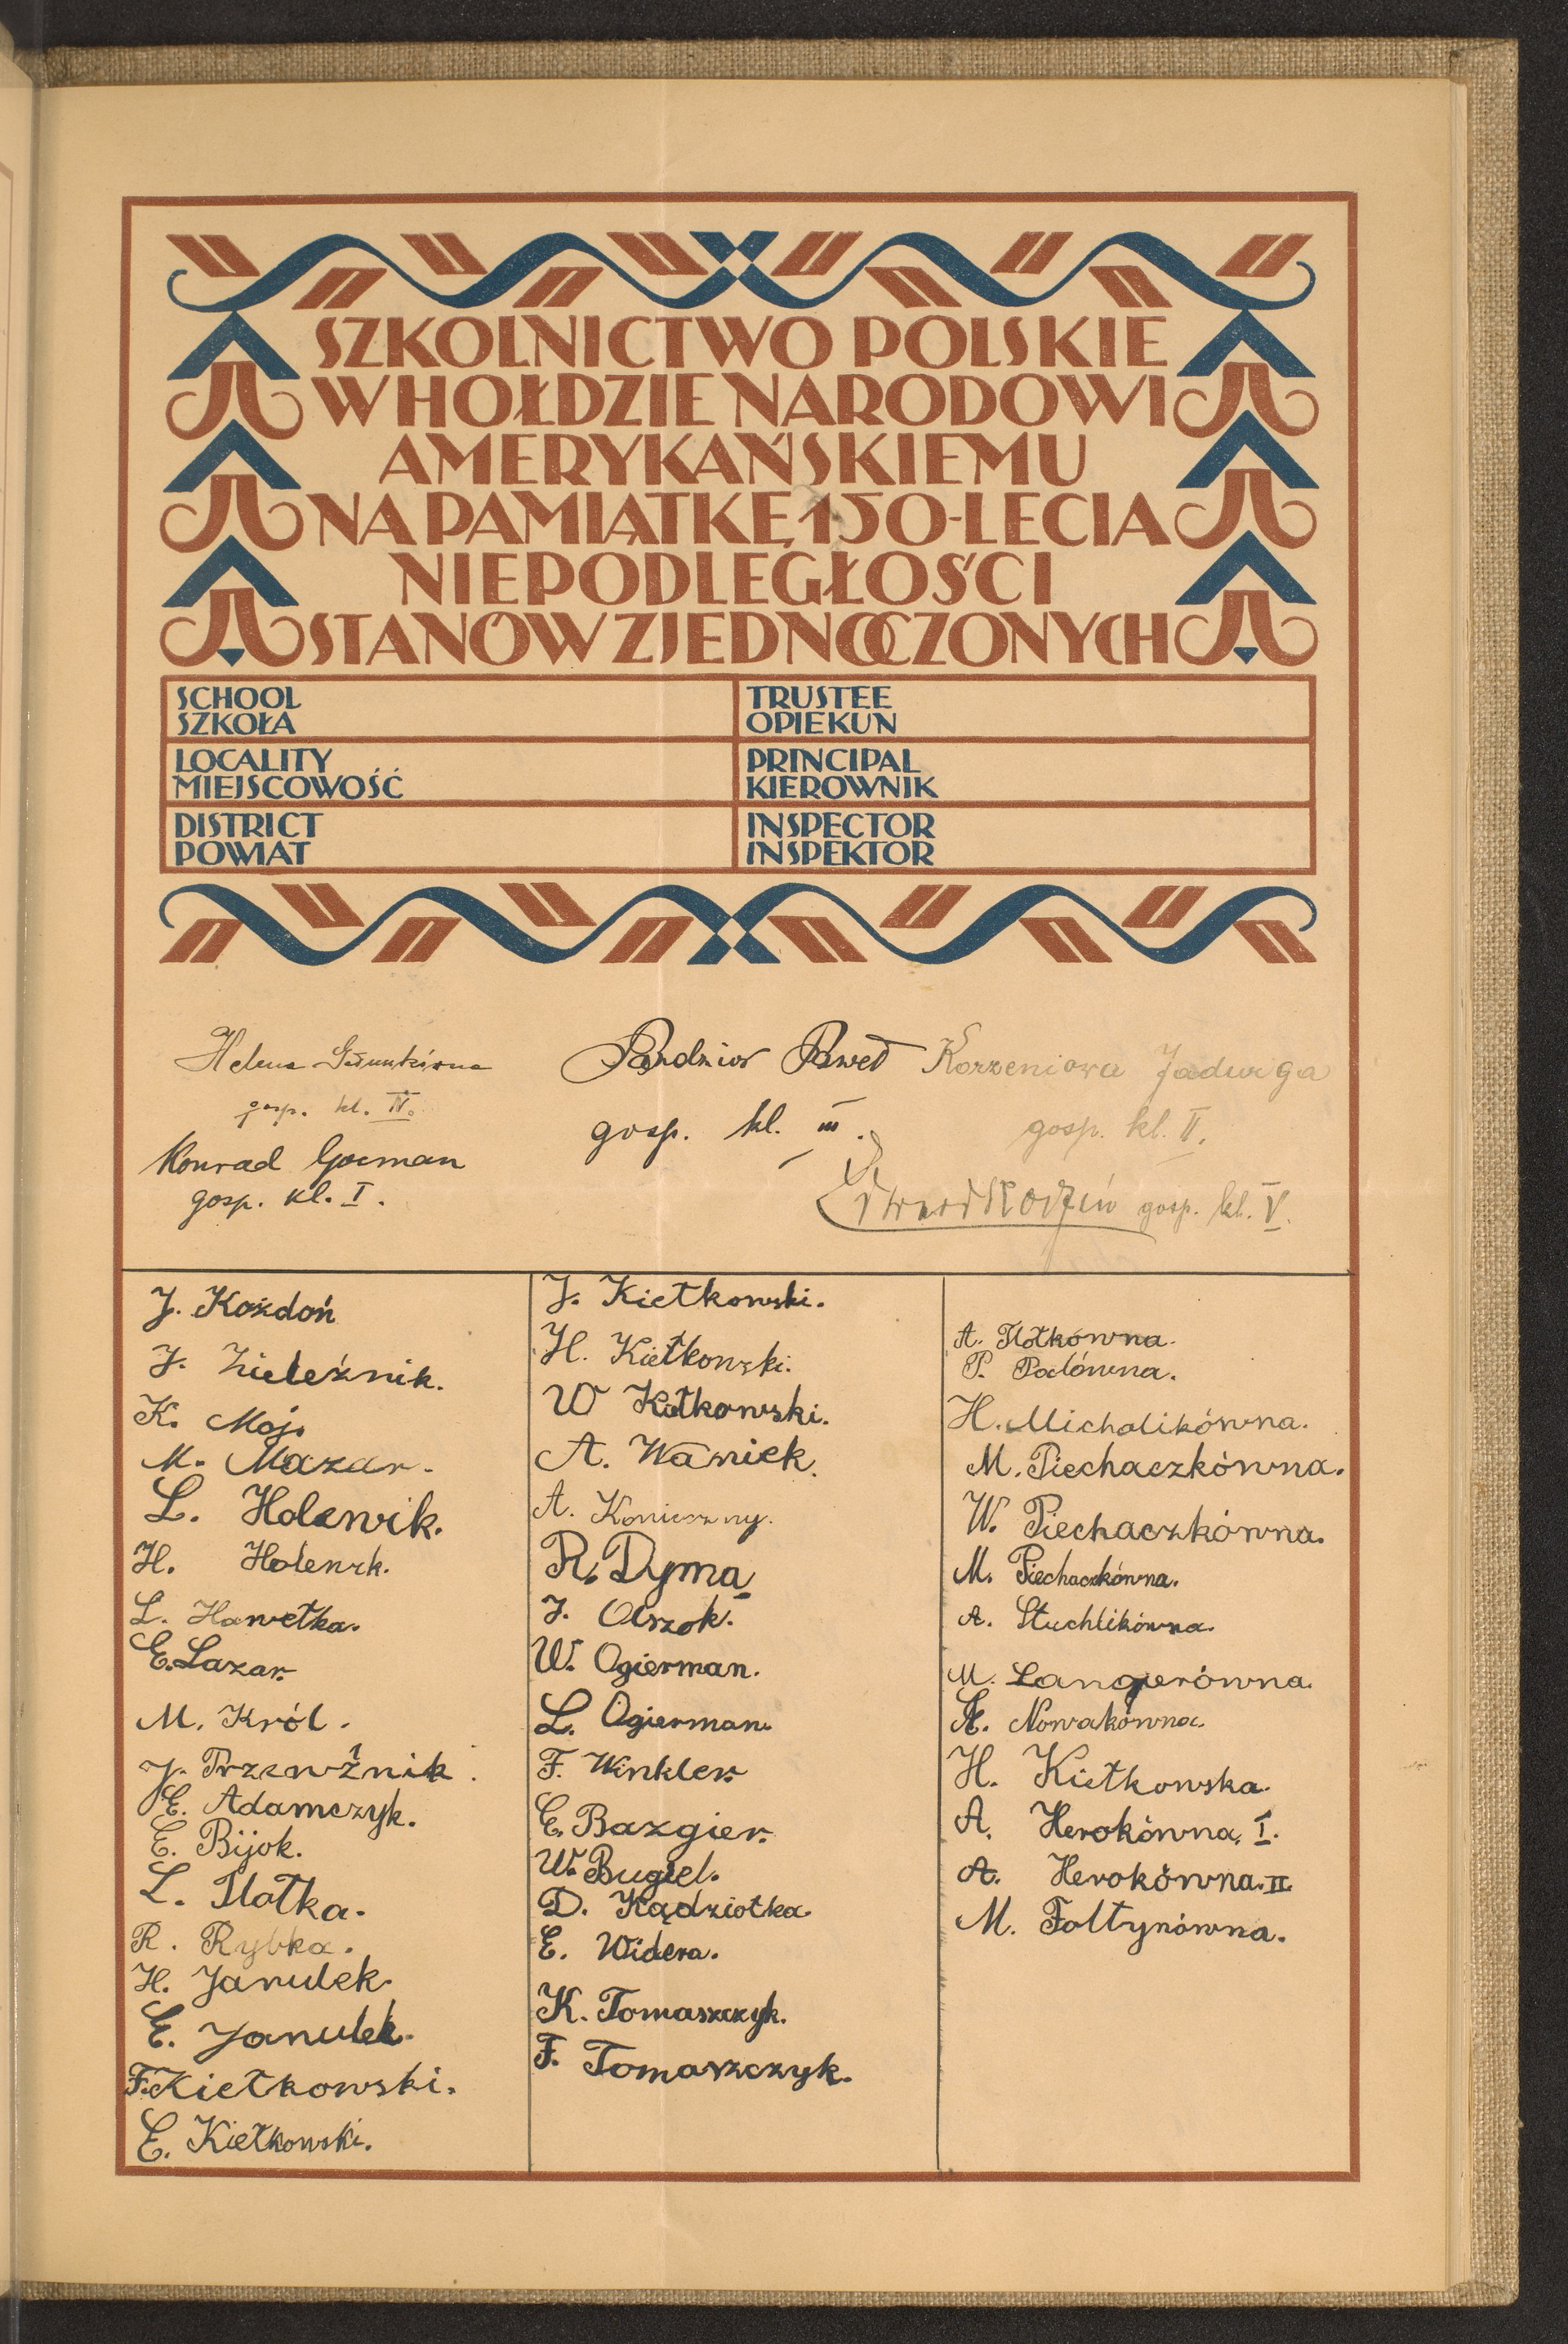 SZKOLNICTWO POLSKIE
W HOŁDZIE NARODOWI
AMERYKAŃSKIEMU
NA PAMIĄTKĘ 150-LECIA
NIEPODLEGŁOŚCI
STANÓW ZJEDNOCZONYCH
SCHOOL
SZKOŁA
TRUSTEE
OPIEKUN
LOCALITY
MIEJSCOWOŚĆ
PRINCIPAL
KIEROWNIK
DISTRICT
POWIAT
INSPECTOR
INSPEKTOR
Helena
gosp. kl. IV.
Konrad Gocman
gosp. kl. I.
Pardzior Paweł
gosp. kl. III.
Korzeniowa Jadwiga
gosp. kl. II.
gosp. kl. V.
J. Kożdoń
J. Zieleźnik.
K. Moj.
M. Mazur.
L. Holewik.
H.
L. Hawełka.
E. Lazar.
M. Król.
J.
E. Adamczyk.
E. Bijok.
L. Płotka.
R. Rybka.
H. Janulek.
E. Janulek.
F. Kiełkowski.
E. Kiełkowski.
J. Kiełkowski.
H. Kiełkowski.
W Kiełkowski.
A.
A. Konieczny.
R. Dyma
J. Olszok.
W. Ogierman.
L. Ogierman.
F. Winkler.
E. Bazgier.
W. Bugiel.
D. Kądziołka.
E. Widera.
K. Tomaszczyk.
F. Tomaszczyk.
A. Płotkówna.
P. Palówna.
H. Michalikówna.
M. Piechaczkówna.
W. Piechaczkówna.
M. Piechaczkówna.
A. Stuchlikówna.
M. Langerówna.
A. Nowakówna.
H. Kiełkowska.
A. Herokówna, I.
A. Herokówna. II.
M. Foltynówna.